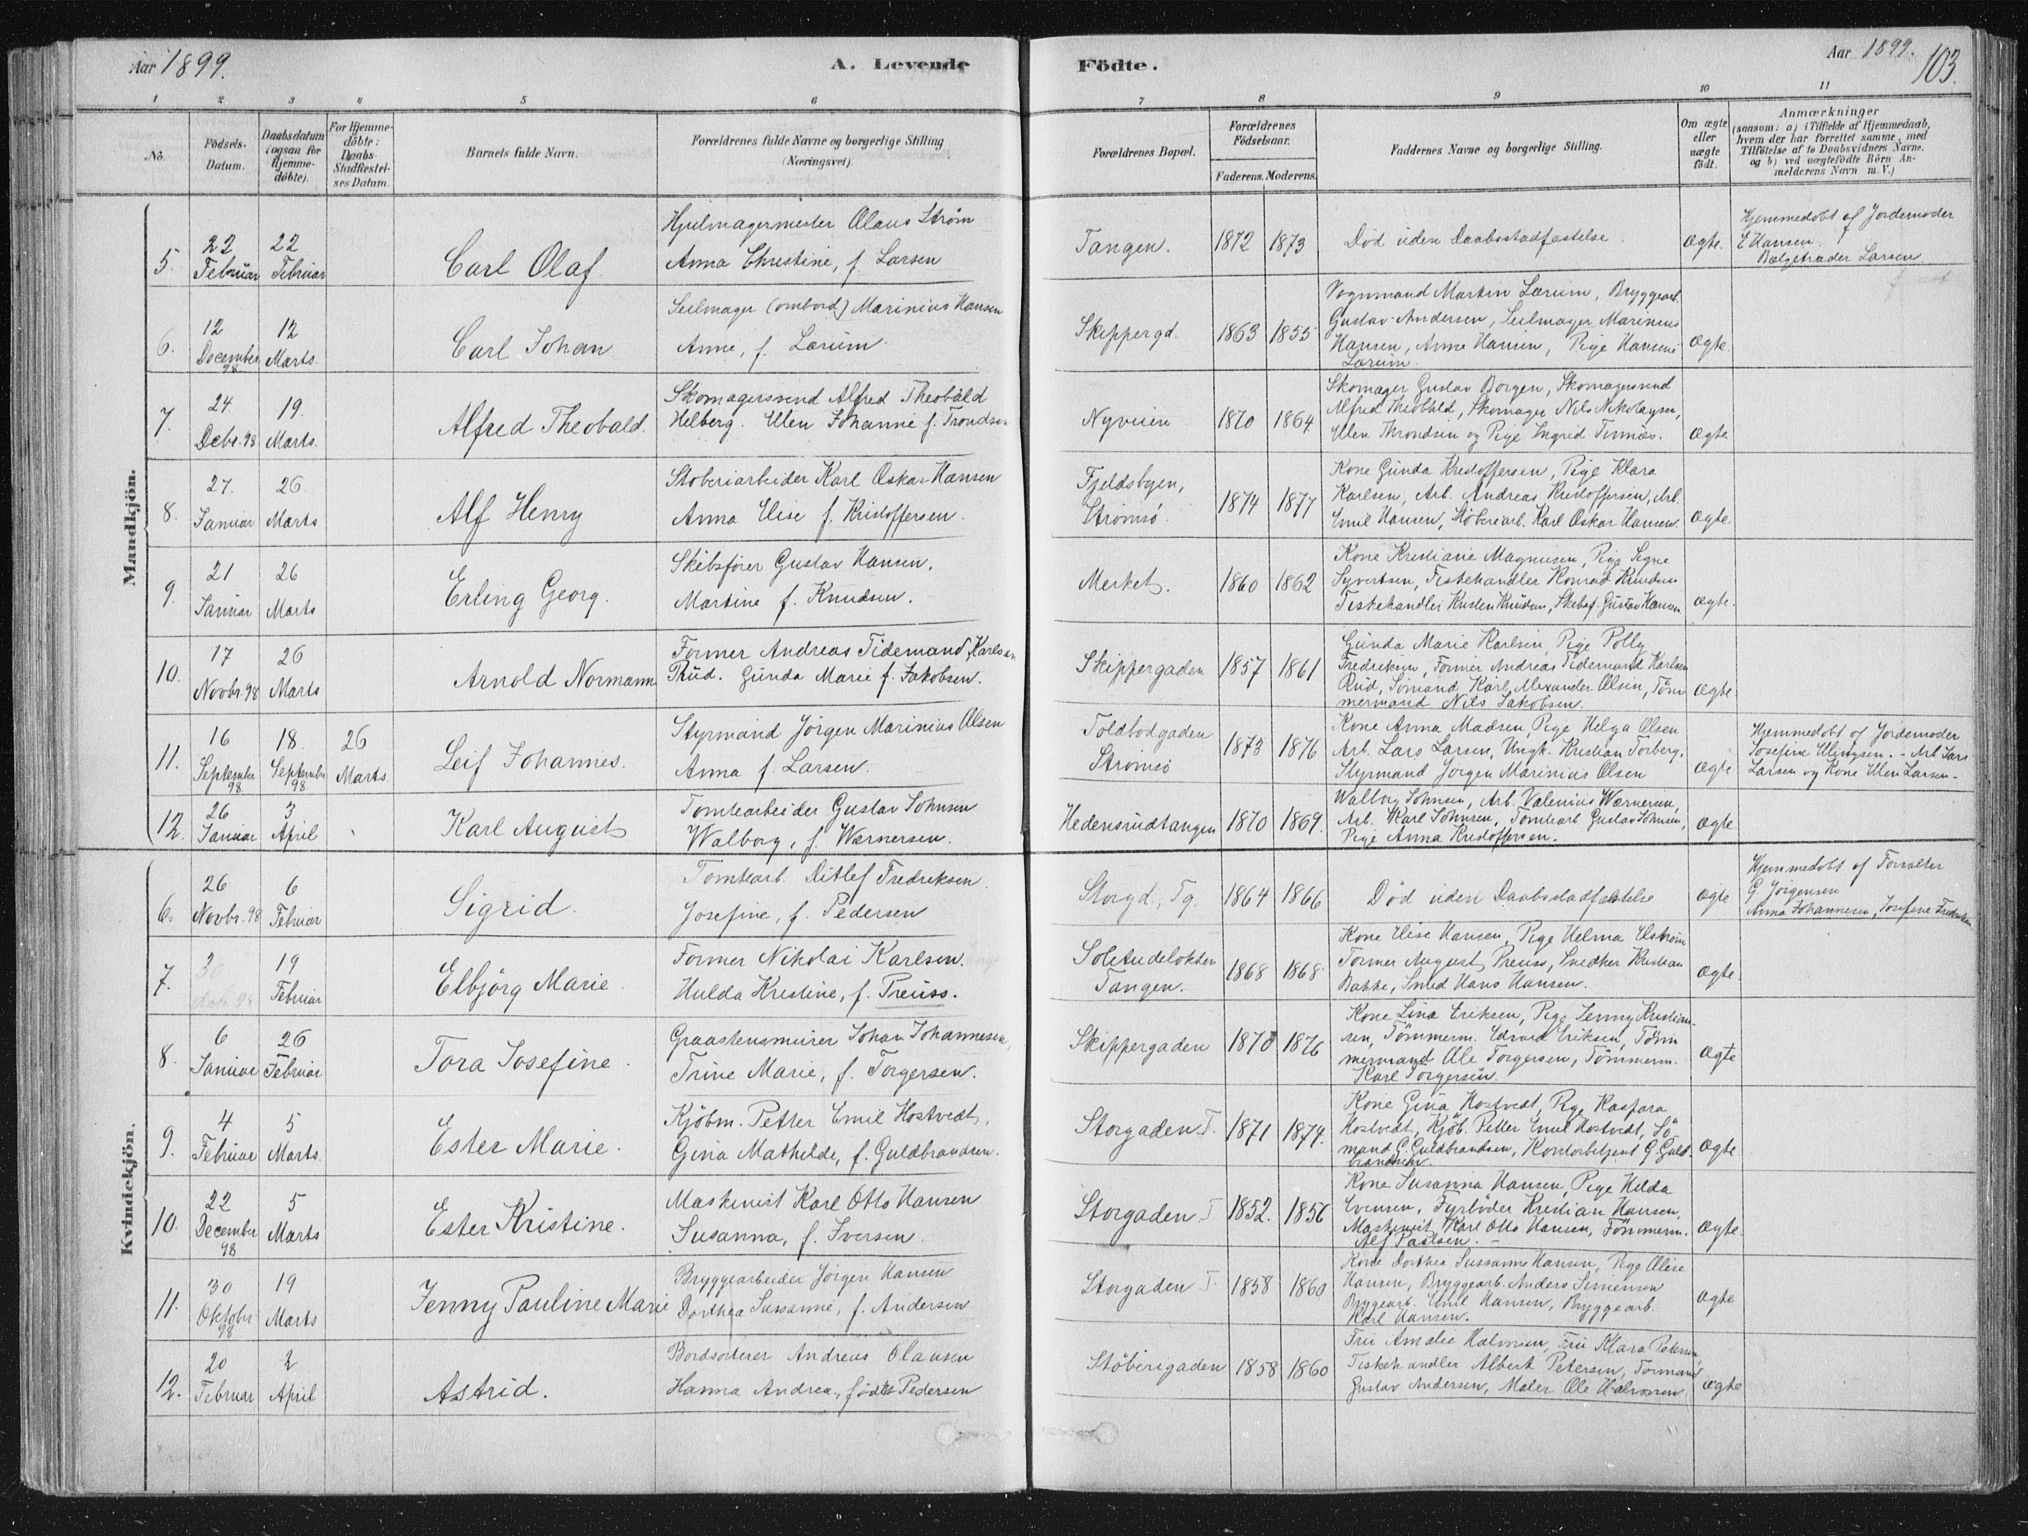 Aar 1899.
A. Levende
Födte.
Aar 1899.
103.
1 2 3 4 5 6 7 8 9 10 11
No.
Födsels-
Datum.
Daabsdatum
(ogsaa for
Hjemme-
döbte).
For Hjemme-
döbte:
Daabs-
Stadfæstel-
ses Datum.
Barnets fulde Navn.
Forældrenes fulde Navne og borgerlige Stilling
(Næringsvei).
Forældrenes Bopæl.
Forældrenes
Födselsaar.
Faderens. Moderens.
Faddernes Navne og borgerlige Stilling.
Om ægte
eller
uægte
födt.
Anmærkninger
(saasom: a) i Tilfælde af Hjemmedaab,
hvem der har forrettet samme, med
Tilföielse af to Daabsvidners Navne.
og b) ved uægtefödte Börn An-
melderens Navn m. V.)
Mandkjön.
5.
22
Februar
22
Februar
Carl Olaf
Hjulmagermester Olaus Strøm
Anna Christine, f. Larsen
Tangen.
1872
1873
Død uden Daabsstadfæstelse.
Ægte.
Hjemmedøbt af Jordemoder
E Hansen.
Bælgetræder Larsen
6.
12
December
98
12
Marts.
Carl Johan
Seilmager (ombord) Marinius Hansen
Anne, f. Lærum.
Skippergd.
1863
1855
Vognmand Martin Lærum, Bryggearb.
Gustav Andersen, Seilmager Marinius
Hansen, Anne Hansen, Pige Hansine
Lærum
Ægte.
7.
24
Debr. 98
19.
Marts.
Alfred Theobald.
Skomagersvend Alfred Theobald
Helberg. Elen Johanne f. Trondsen
Nyveien
1870
1864
Skomager Gustav Borgen, Skomagersvend
Alfred Theobald, Skomager Nils Nikolaysen,
Elen Throndsen og Pige Ingrid
Ægte.
8.
27.
Januar
26
Marts
Alf Henry
Støberiarbeider Karl Oskar Hansen
Anna Elise f. Kristoffersen.
Fjeldsbyen,
Strømsø.
1874
1877
Kone Gunda Kristoffersen, Pige Klara
Karlsen, Arb. Andreas Kristoffersen, Arb.
Emil Hansen, Støberiarb. Karl Oskar Hansen.
Ægte.
9.
21
Januar
26
Marts
Erling Georg.
Skibsfører Gustav Hansen.
Martine f. Knudsen.
Merket.
1860
1862
Kone Kristiane Magnusen, Pige Signe
Syvertsen, Fiskehandler Konrad Knudsen
Fiskehandler Kristen Knudsen, Skibsf. Gustav Hansen
Ægte.
10.
17
Novbr. 98
26
Marts
Arnold Normann
Former Andreas Tidemand Karlsen
Rud. Gunda Marie f. Jakobsen.
Skippergaden
1857
1861
Gunda Marie Karlsen, Pige Polly
Fredriksen, Former Andreas Tidemand Karlsen
Rud, Sømand Karl Alexander Olsen, Tøm
mermand Nils Jakobsen.
Ægte
11.
16
September
98
18.
September
98
26
Marts.
Leif Johannes.
Styrmand Jörgen Marinius Olsen
Anna f. Larsen.
Toldbodgaden
Strømsø
1873
1876
Kone Anna Madsen, Pige Helga Olsen
Arb. Lars Larsen, Ungk. Kristian Torberg,
Styrmand Jørgen Marinius Olsen
Ægte
Hjemmedøbt af Jordemoder
Josefine Ellingsen. - Arb Lars
Larsen og Kone Elen Larsen.
12.
26
Januar
3
April
Karl August
Tomtearbeider Gustav Johnsen
Walborg, f. Wærnersen.
Hedensrudtangen
1870
1869.
Walborg Johnsen, Arb. Valenius Wærnersen,
Arb. Karl Johnsen, Tomtearb. Gustav Johnsen,
Pige Anna Kristoffersen.
Ægte
Kvindekjön.
6.
26
Novbr. 98
6
Februar
Sigrid.
Tomtearb. Ditlef Fredriksen.
Josefine, f. Pedersen
Storgd., Tg.
1864
1866
Død uden Daabsstadfæstelse
Ægte
Hjemmedøbt af Forvalter
G. Jørgensen
Anna Johannesen, Josefine Fredriksen
7.
30
19
Februar
Elbjörg Marie.
Former Nikolai Karlsen.
Hulda Kristine, f. Preuss.
Solitudeløkken
Tangen.
1868
1868
Kone Elise Hansen, Pige Helma Elstrøm
Former August Preuss, Snedker Kristian
Bakke, Smed Hans Hansen.
Ægte.
8.
6
Januar
26
Februar
Tora Josefine.
Graastensmurer Johan Johannesen,
Trine Marie, f. Torgersen.
Skippergaden
1870
1876
Kone Lina Eriksen, Pige Jenny Kristian-
sen, Tømmerm. Edvard Eriksen, Tøm
mermand Ole Torgersen, Tømmerm.
Karl Torgersen.
Ægte
9.
4
Februar
5
Marts.
Ester Marie.
Kjöbm. Petter Emil Hostvedt.
Gina Mathilde, f. Guldbrandsen.
Storgaden. T.
1871
1874.
Kone Gina Hostvedt, Pige Kaspara
Hostvedt, Kjøb. Petter Emil Hostvedt, Sø
mand G. Guldbrandsen, Kontorbetjent G. Guld-
brandsen.
Ægte
10.
22
December
98
5
Marts
Ester Kristine.
Maskinist Karl Otto Hansen
Susanna, f. Iversen.
Storgaden T
1852.
1856
Kone Susanna Hansen, Pige Hilda
Evensen, Fyrbøder Kristian Hansen,
Maskinist Karl Otto Hansen, Tømmerm.
Alf Paulsen. -
Ægte.
11.
30
Oktober
98
19
Marts
Jenny Pauline Marie
Bryggearbeider Jörgen Hansen
Dorthea Susanne, f. Andersen
Storgaden T.
1858
1860
Kone Dorthea Sussanne Hansen, Pige Olise
Hansen, Bryggearb. Anders Simensen
Bryggearb. Emil Hansen, Bryggearb.
Karl Hansen.
Ægte
12.
20
Februar
2
April
Astrid.
Bordsorterer Andreas Olausen
Hanna Andrea, født Pedersen
Støberigaden
1858
1860
Fru Amalie Halvorsen, Fru Klara Petersen
Fiskehandler Albert Petersen, Formand
Gustav Andersen, Maler Ole Halvorsen,
Ægte